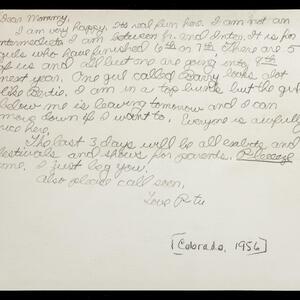 Dear Mommy,
I am very happy. Its real fun here. I am not an
intermediate I am between Jr. and Inter. It is for
girls who have finished 6th or 7th. There are 5
of us and all but one are going into 8th
next year. One girl called Barry looks alot
like Bertie. I am in a top bunk but the girl
below me is leaving tomorrow and I can
move down if I want to. Everyone is awfully
nice here.
The last 3 days will be all exibits and
festivals and shows for parents. Pleeeeze
come, I just beg you.
Also please call soon.
Love
[Colorado, 1956]